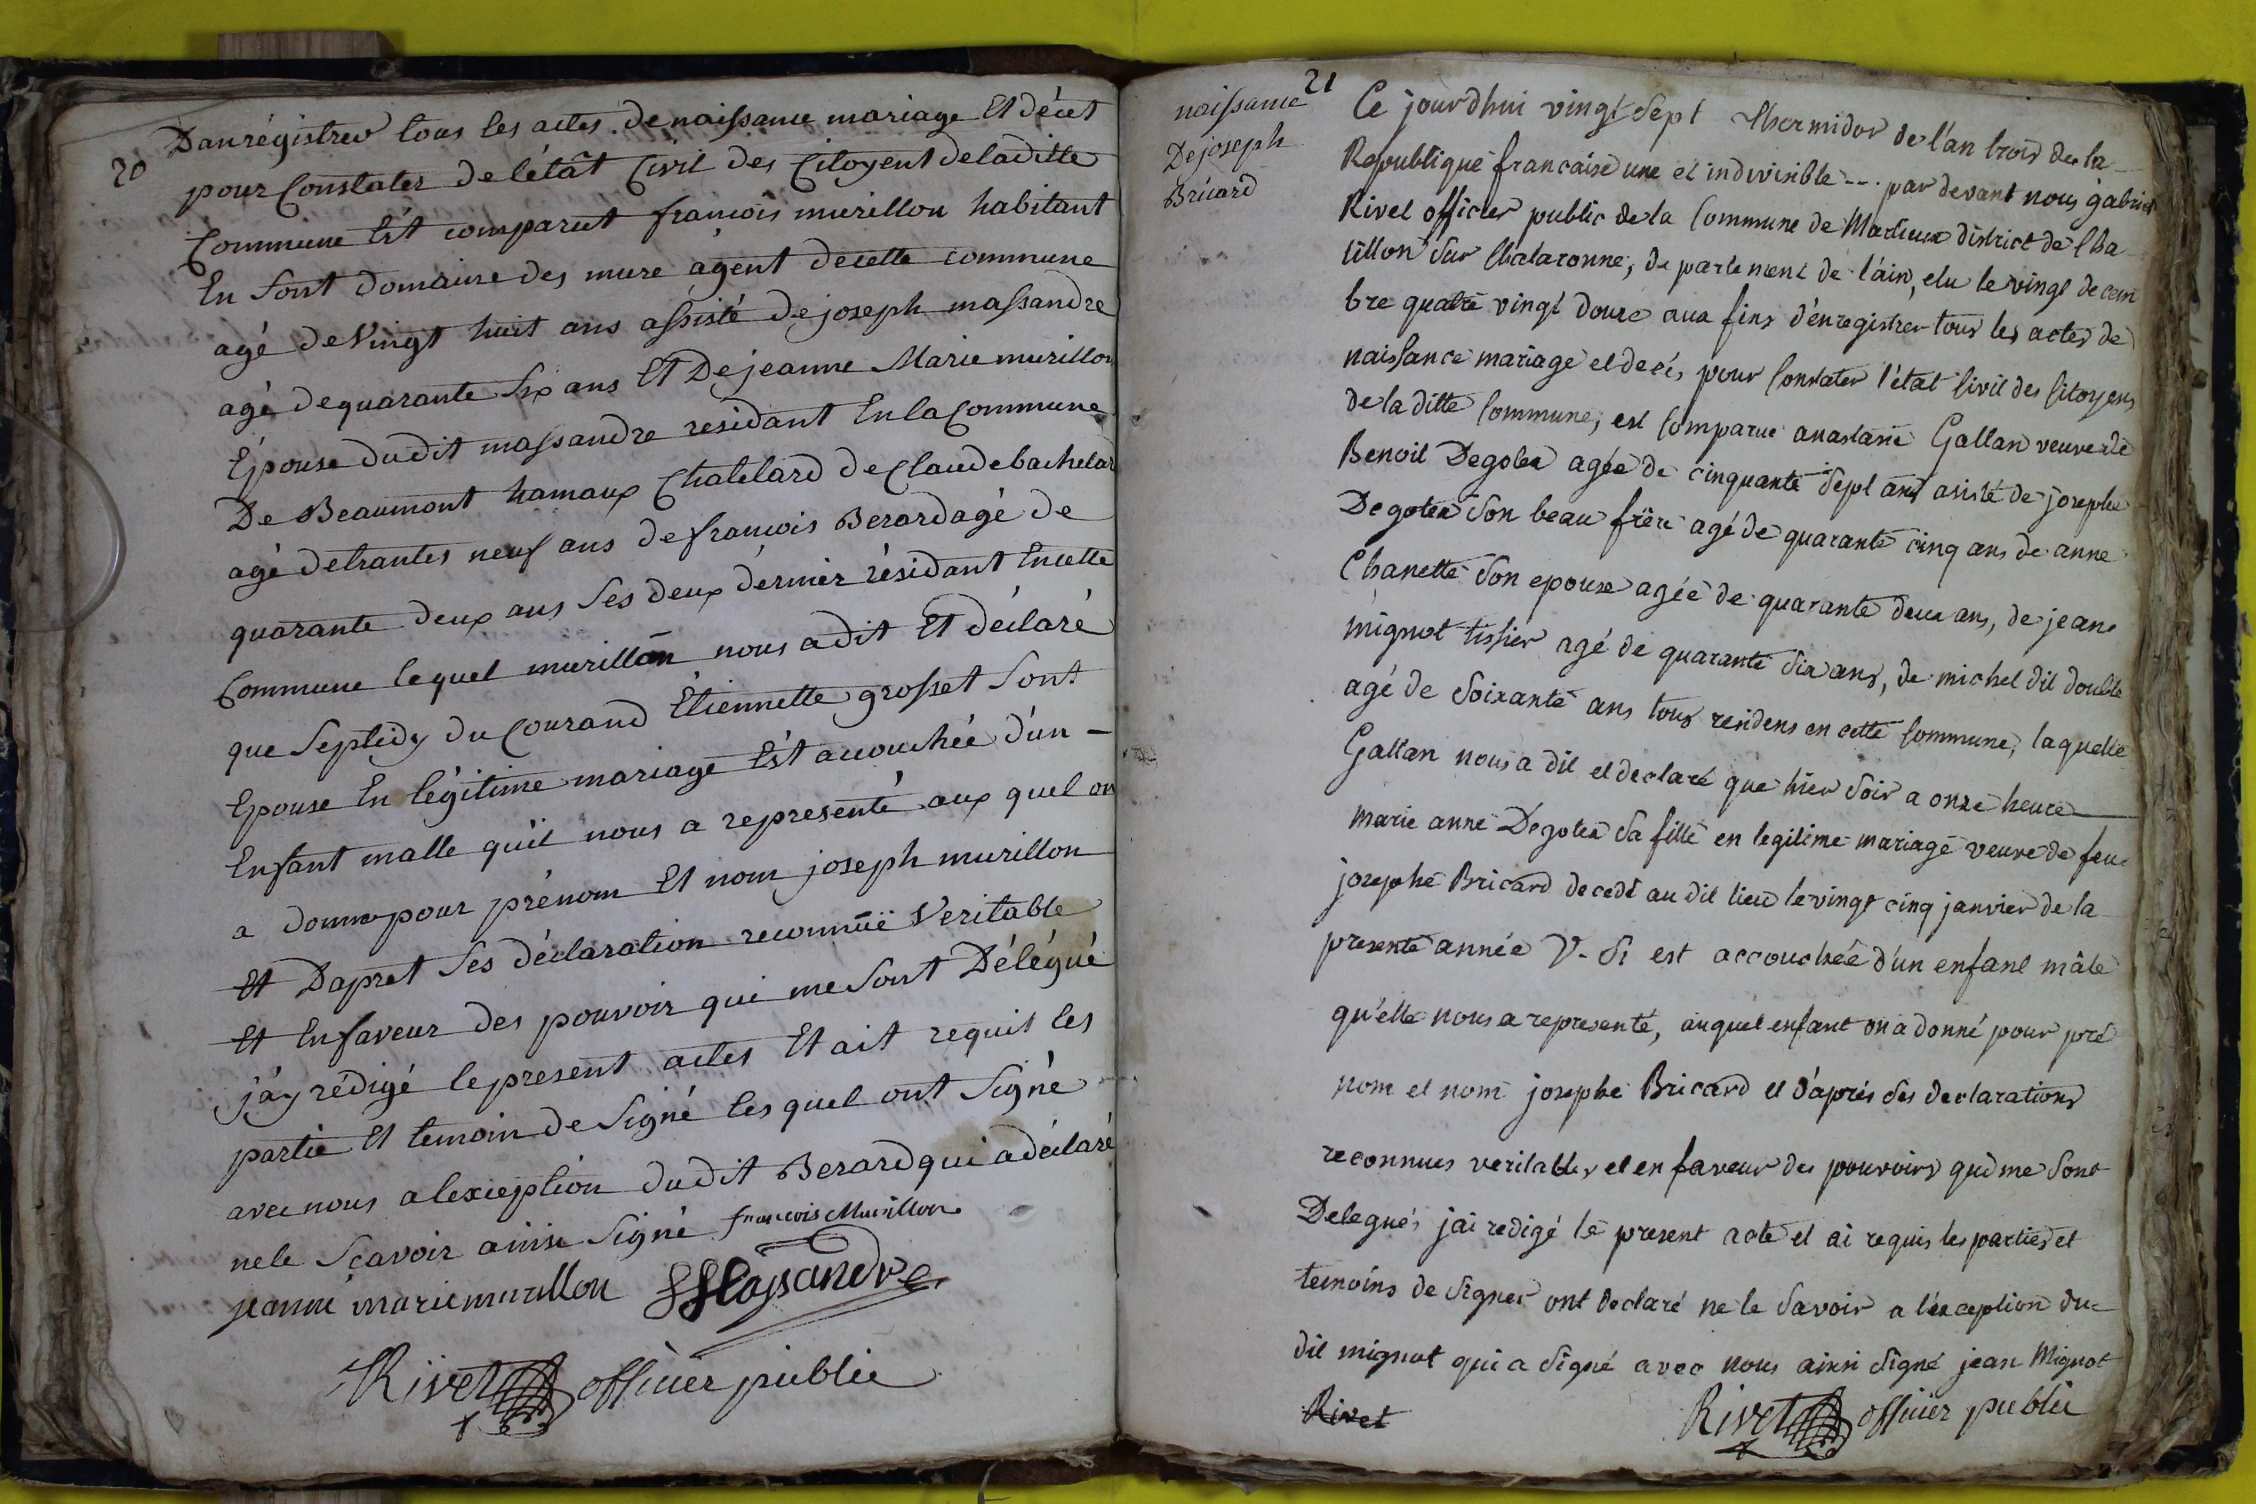 20
Danrégistrer tous les actes de naissance mariage Et décet
pour Constater de l'étât Civil des Citoyent de laditte
Commune Est comparut francois murillon habitant
En sont domaine des mure agent de cette commune
agé de Vingt huit ans assisté de joseph massandre
agé de quarante six ans Et De jeanne Marie murillon
Épouse dudit massandre residant En la Commune
De Beaumont hamaux Chatelard de Claude bachelard
agé de trantes neuf ans de francois Berard agé de
quarante deux ans ses deux dérnier résidant En cette
Commune le quel murillon nous a dit Et déclaré
que Septidy du Courand Étiennette grosset sont
Epouse En légitime mariage Est acouchée d'un -
Enfant malle qu'il nous a representé aux quel on
a donné pour prénom Et nom joseph murillon
Et Dapret ses déclaration reconnüë Veritable
Et En faveur des pouvoir qui me sont Délégué
j'ay rédigé le present actes Et ait requis les
partie Et temoin de signé les quel ont signé
avec nous a lexception dudit Berard qui a déclaré
ne le sçavoir ainsi signé francois Murillon
jeanne marie murillon JMassandre
Rivet officier public
21
naissance
De joseph
Bricard
Ce jourdhui vingt sept thermidor de l'an trois de la
Republique francaise une et indivisible -- par devant nous gabriel
Rivet officier public de la Commune de Marlieux district de Cha
tillon sur Chalaronne, departement de l'ain, elu le vingt decem
bre quatre vingt douze aux fins d'enregistrer tous les actes de
naissance mariage et decés, pour Constater l'état Civil des Citoyens
de la ditte Commune, est Comparue anastasie Gallan veuve de
Benoit Degolea agée de cinquante sept ans asisté de josephe
Degolea son beau frère agé de quarante cinq ans de anne
Chanette son epouse agée de quarante deux ans, de jean
mignot tissier agé de quarante six ans, de michel dit double
agé de soixante ans tous residens en cette Commune, laquelle
Gallan nous a dit et declaré que hier soir a onze heure
marie anne Degolea sa fille en legitime mariage veuve de feu
josephe Bricard decedé au dit lieu le vingt cinq janvier de la
presente année V. St est accouchée d'un enfant mâle
qu'elle nous a representé, auquel enfant on a donné pour pré
nom et nom josephe Bricard et d'aprés ses declarations
reconnues veritables et en faveur des pouvoirs qui me sont
Delegués jai redigé le present acte et ai requis les parties et
temoins de signer ont declaré ne le savoir a l'exception du
dit mignot qui a signé avec nous ainsi signé jean Mignot
Rivet
Rivet officier public